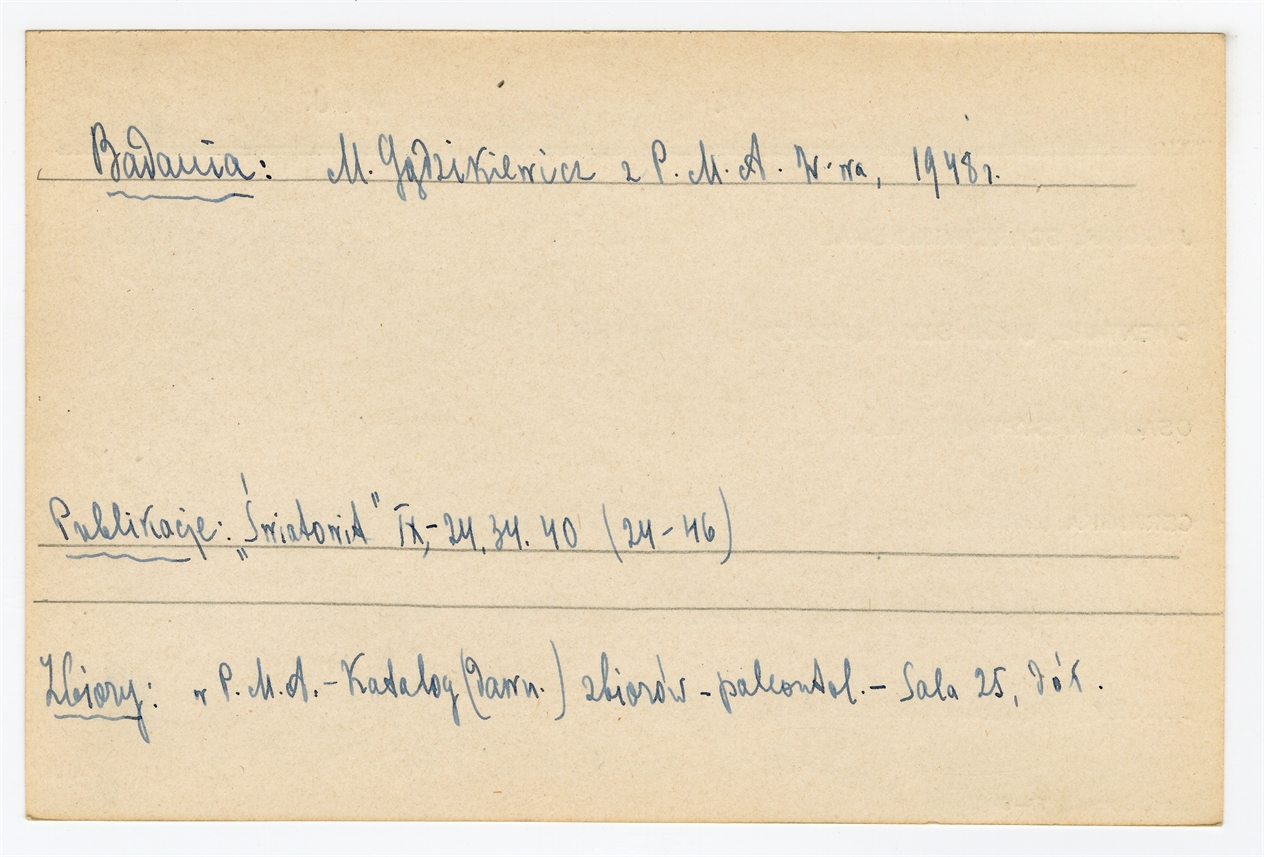 Badania: M. Gądzikiewicz z P. M. A. W-wa, 1948 r.
Publikacje: „Światowit" IX,- 24, 34. 40 (24-46)
Zbiory: w P. M. A. - Katalog (dawn.) zbiorów - paleontol. - Sala 25, dół.